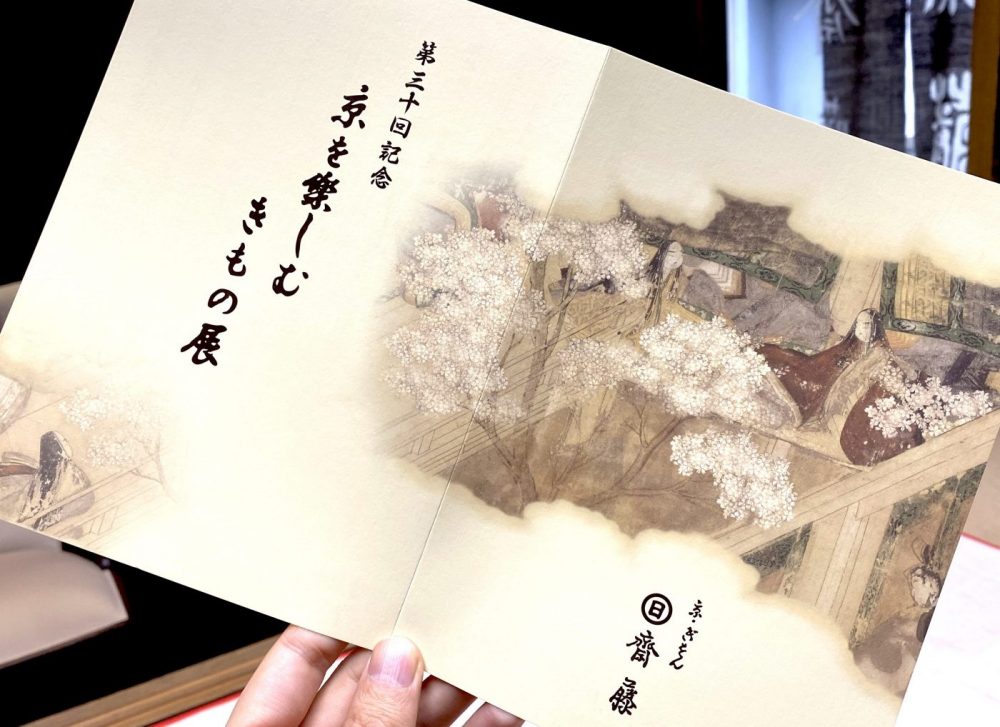 第三十回記念
京を樂しむ
きもの展
京・ぎをん
㊐齋藤